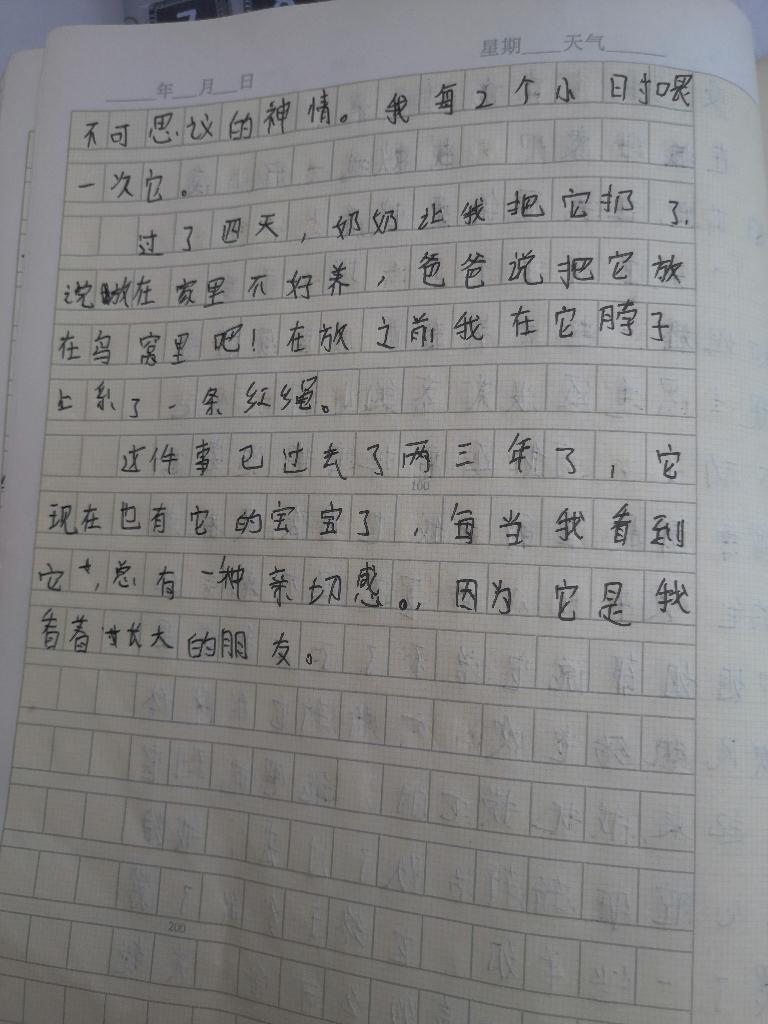 星期____天气____
____年__月__日
不可思议的神情。我每2个小日寸喂
一次它。
过了四天，奶奶让我把它扔了.
说放在家里不好养，爸爸说把它放
在鸟窝里吧！在放之前我在它脖子
上系了一条红绳。
这件事已过去了两三年了，它
100
现在也有它的宝宝了，每当我看到
它，总有一种亲切感。，因为它是我
看着长大的朋友。
200